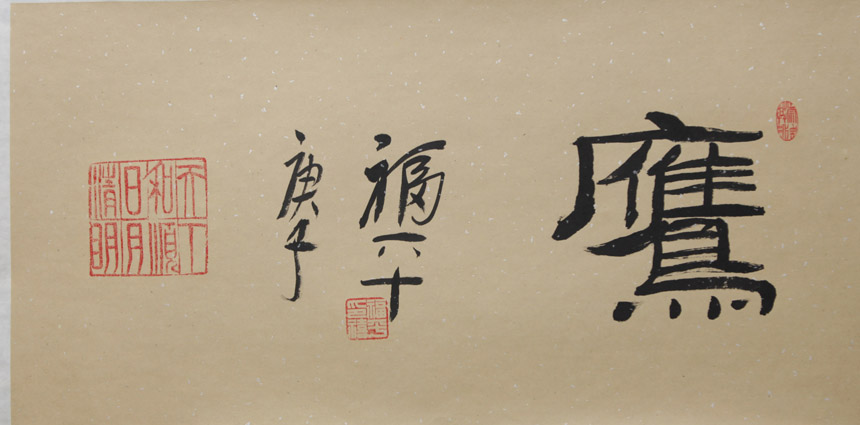 鷹
福六十
庚子
天下
和順
日月
清明